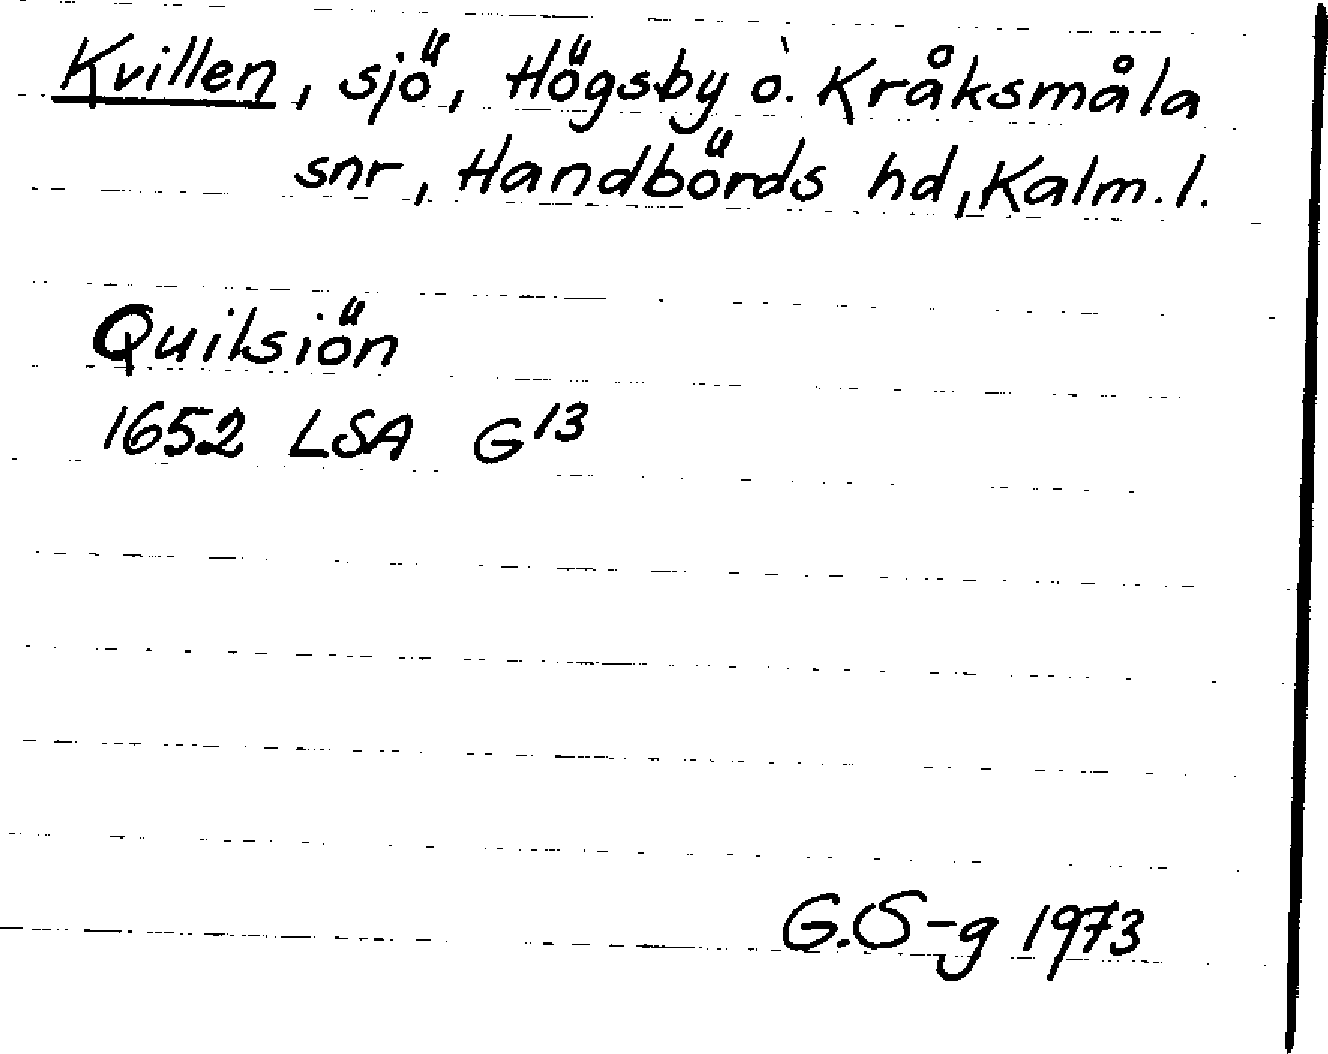 Kvillen, sjö, Högsby o. Kråksmåla
snr, Handbörds hd, Kalm. l.
Quilsiön
1652 LSA G13
G.S-g 1973